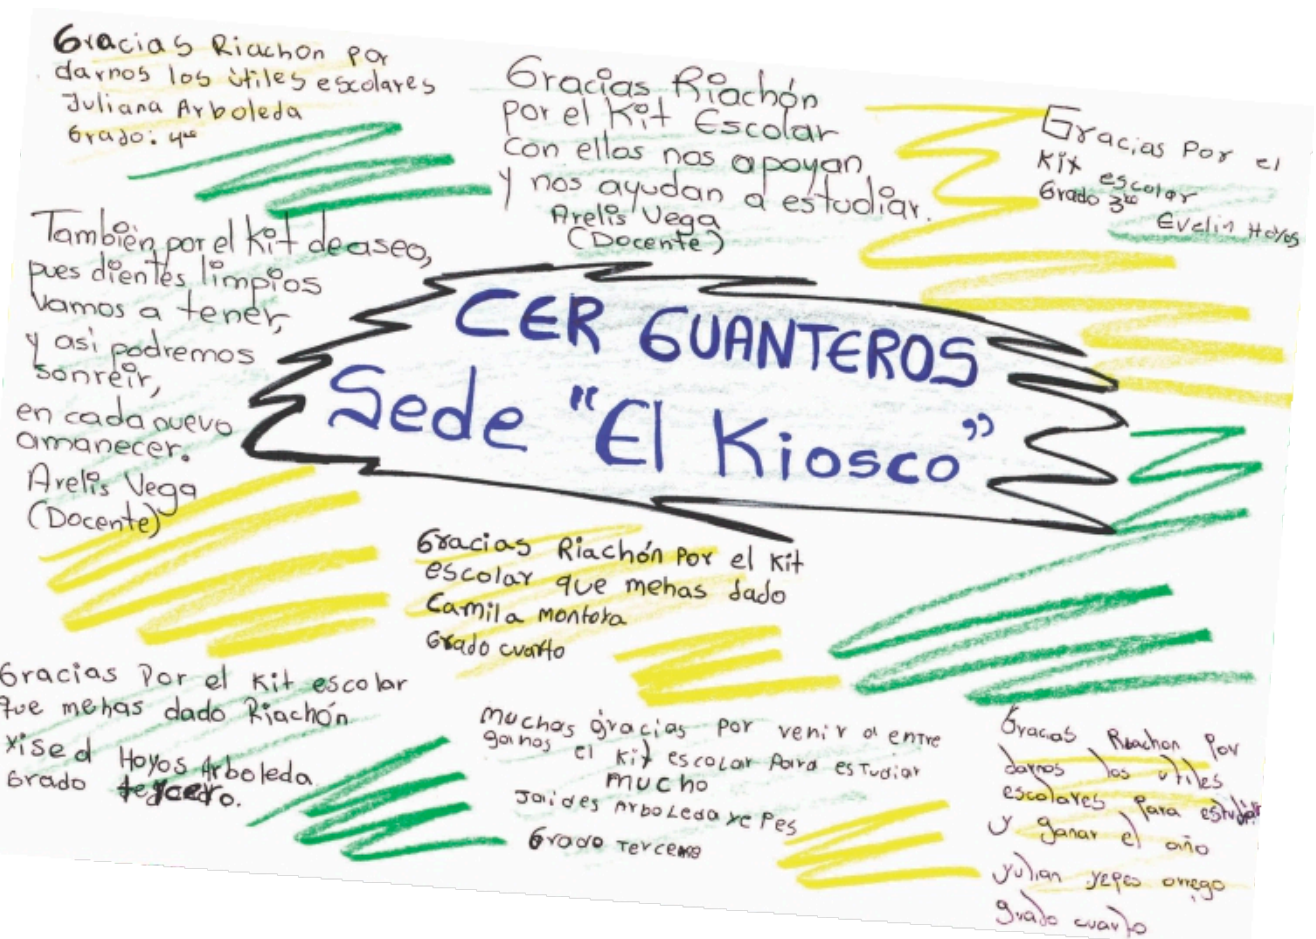 Gracias Riachon por
darnos los útiles escolares
Juliana Arboleda
Grado: 4to
Gracias Riachón
por el Kit Escolar
con ellos nos apoyan
y nos ayudan a estudiar.
Arelis Vega
(Docente)
Gracias Por el
Kit escolar
Grado 3ro
Evelin Hoyos
También por el Kit de aseo,
pues dientes limpios
vamos a tener,
y asi podremos
sonreír,
en cada nuevo
amanecer.
Arelis Vega
(Docente)
CER GUANTEROS
Sede "El Kiosco"
Gracias Riachón Por el Kit
escolar que mehas dado
Camila montoya
Grado cuarto
Gracias Por el Kit escolar
que mehas dado Riachón
Yised Hoyos Arboleda
Grado tercero.
muchas gracias por venir a entre
garnos el Kit escolar Para esTudiar
mucho
Jaides Arboleda yePes
Grado Tercero
Gracias Riachon Por
darnos los utiles
escolares Para estudiar
y ganar el año
yulian yepes orrego
grado cuarto